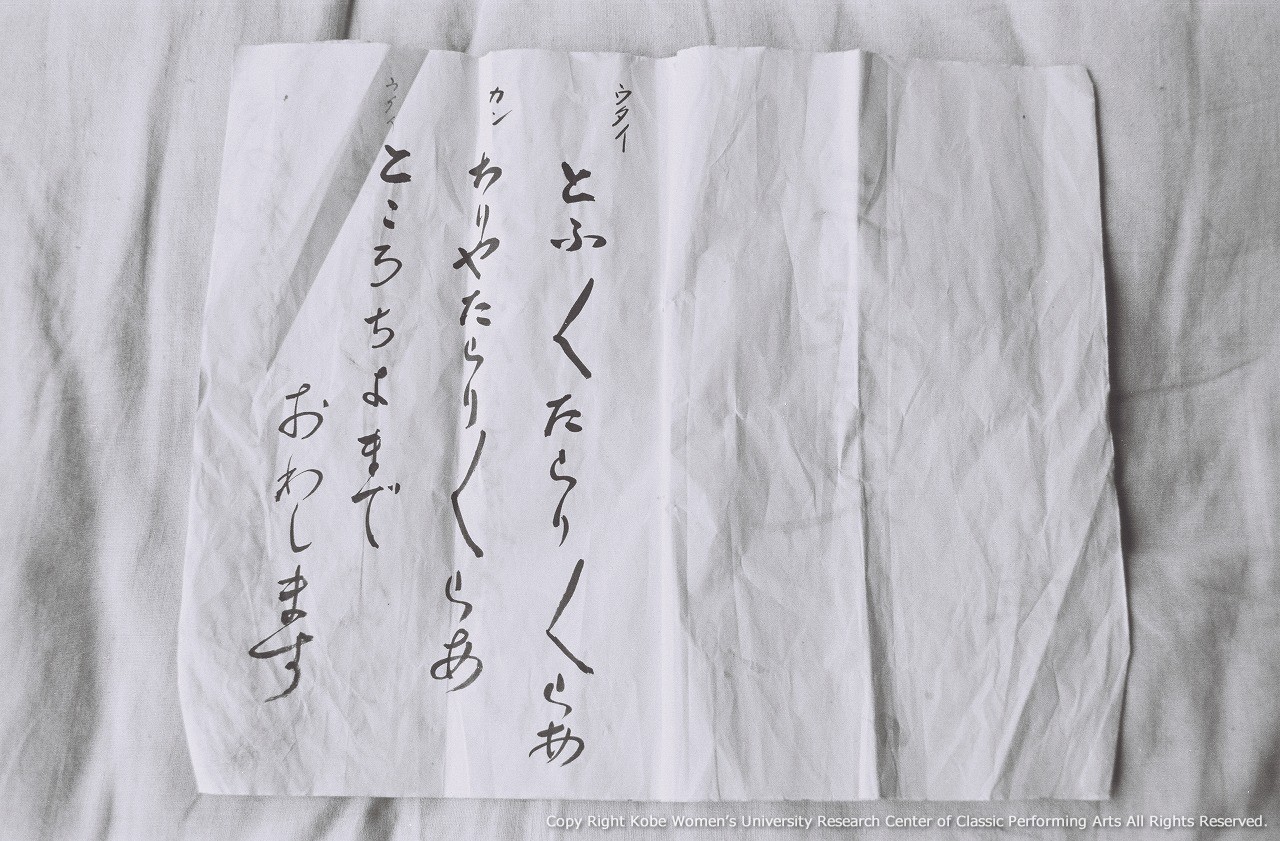 ウタイ
とふ〱たらり〱らあ
カン
ちりやたらり〱らあ
ウタイ
ところちよまで
おわします
Copy Right Kobe Women's University Research Center of Classic Performing Arts All Rights Reserved.